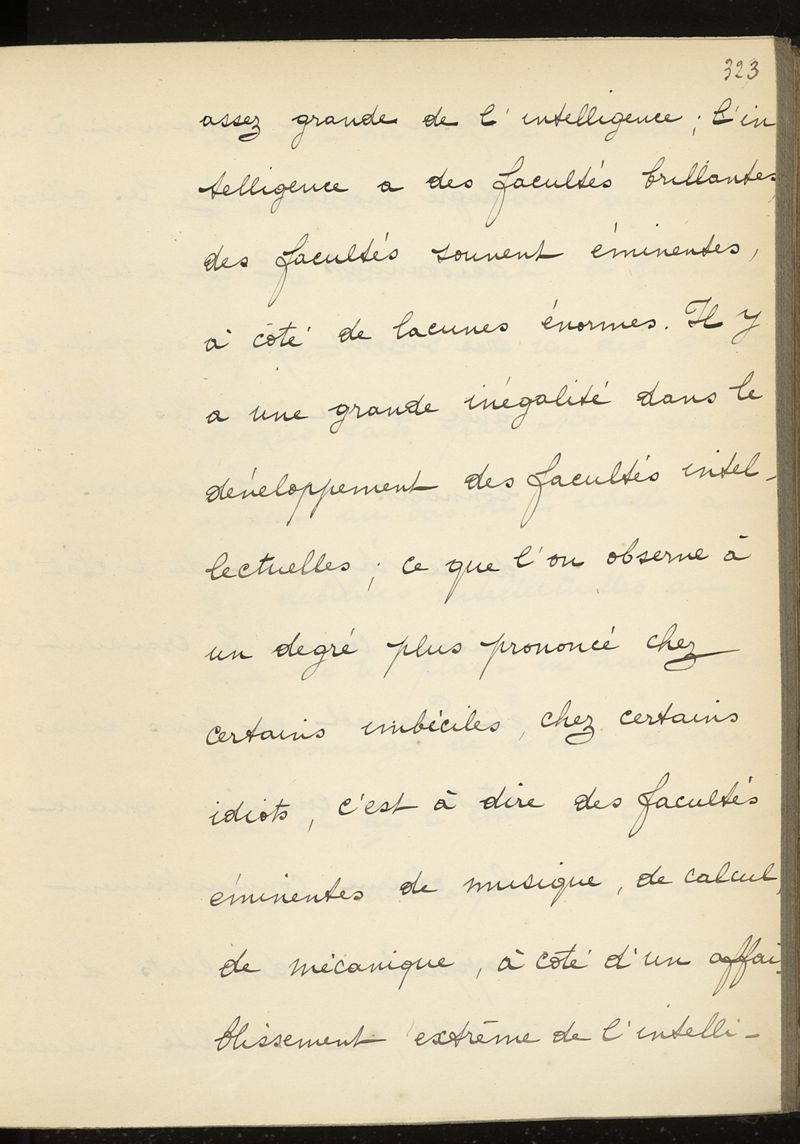 323
assez grande de l'intelligence ; l'in
telligence a des facultés brillantes,
des facultés souvent éminentes,
à côté de lacunes énormes. Il y
a une grande inégalité dans le
développement des facultés intel-
lectuelles ; ce que l'on observe à
un degré plus prononcé chez
certains imbéciles, chez certains
idiots, c'est à dire des facultés
éminentes de musique, de calcul,
de mécanique, à coté d'un affai-
blissement extrême de l'intelli-